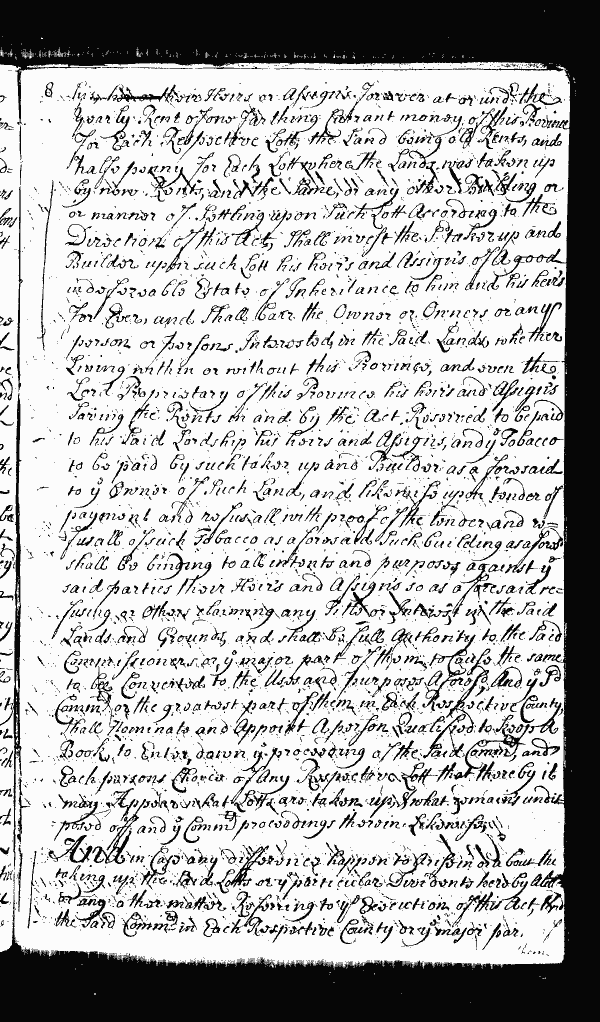 8
his her or their Heirs or Assigns For ever at or undr. the
yearly Rent of one Farthing Currant money of this Province
For Each Respective Lott, the Land being old Rents, and
halfe penny For Each Lott where the Lands was taken up
by new Rents, and the Same, or any other Building or
or manner of Settling upon Such Lott According to the
Direction of this Act, Shall invest the Sd. taker up and
Builder upon such Lott his heirs and Assigns of A good
indefeazable Estate of Inheritance to him and his heirs
For Ever, and Shall barr the Owner or Owners or any
person or persons Interested, in the Said Lands, whether
Living within or without this Province, and even the
Lord Proprietary of this Province his heirs and Assigns
Saving the Rents in and by the Act Reserved to be paid
to his Said Lordship his heirs and Assigns, and ye Tobacco
to be paid by such taker up and Builder as a foresaid
to ye Owner of Such Land, and likewise upon tender of
payment and refusall with proof of the tender and re=
fusall of such Tobacco as a foresaid Such building as afores
shall be binding to all intents and purposes against ye
said parties their Heirs and Assigns so as a foresaid re=
fusing or others claiming any Title or Interest in the Said
Lands and Grounds, and shall be full Authority to the Said
Commissioners or ye major part of them to Cause the same
to bee Converted to the Uses and purposes Aforesd. And ye Sd
Commrs or the greatest part of them in Each Respective County,
Shall Nominate and Appoint A person Qualified to keep A
Book, to Enter down ye proceeding of the Said Commrs, and
Each persons Choice of any Respective Lott that thereby it
may Appear what Lotts are taken up, & what remains undis
posed off, and ye Commrs proceedings therein Likewise,
And in Case any difference happen to Arise in or about the
taking up the Said Lotts or ye particular Dividents hereby
or any other matter Referring to ye Execution of this Act,
the Said Commrs in Each Respective County or ye major par. of
them